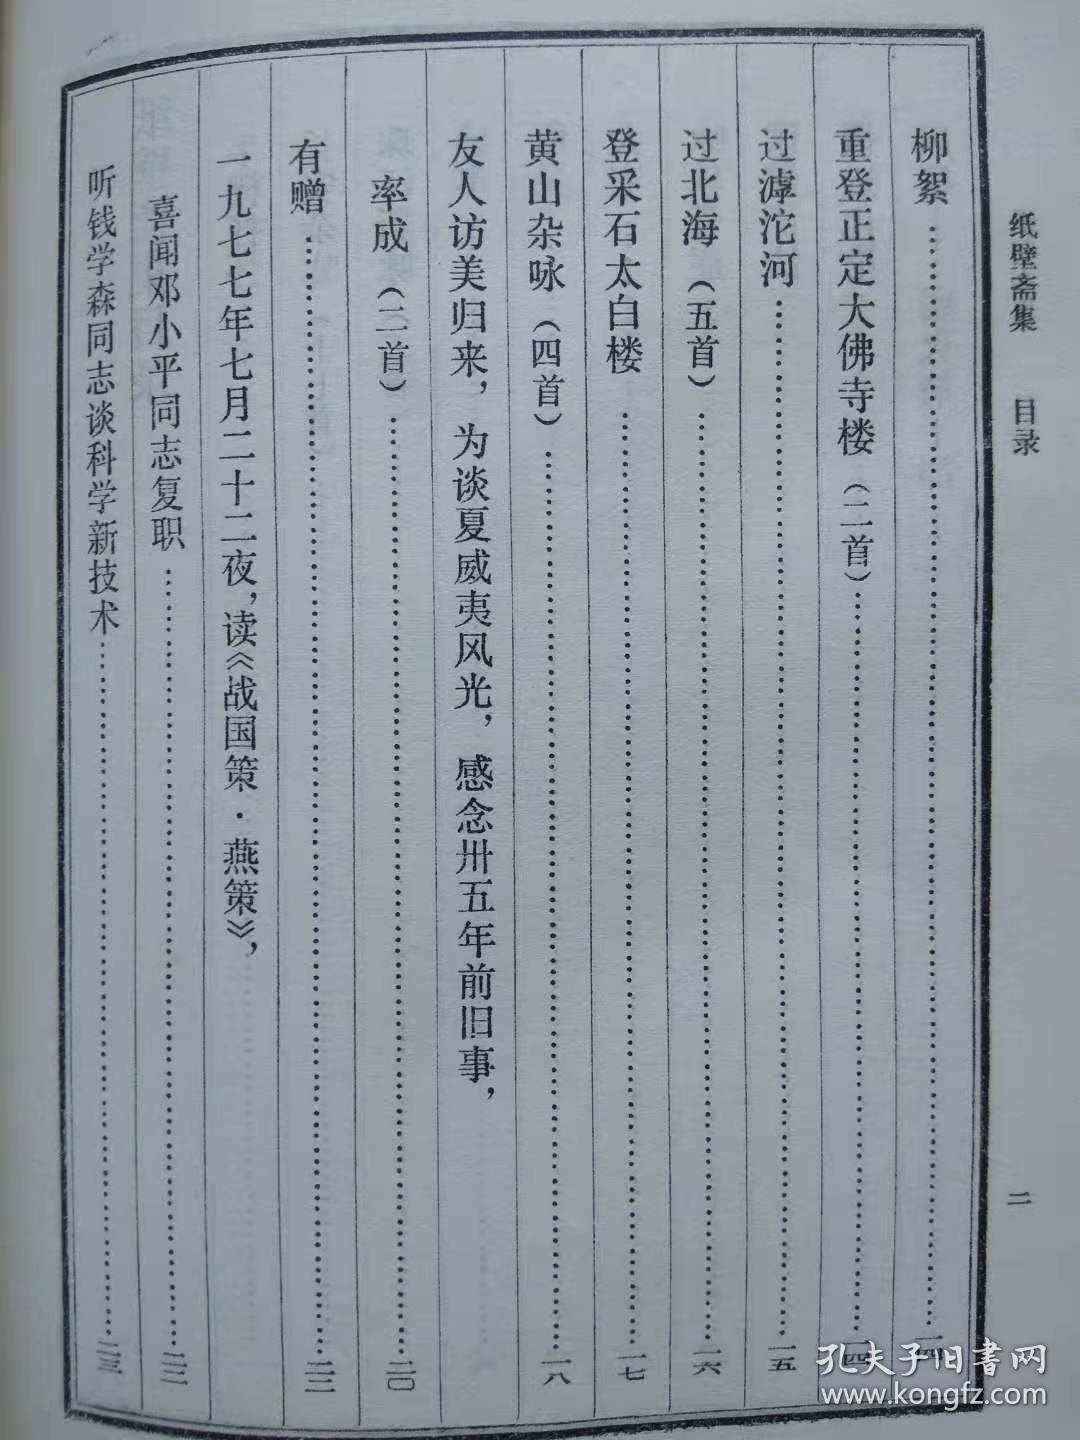 纸壁斋集 目录 二
柳絮……一四
重登正定大佛寺楼（二首）……一四
过滹沱河……一五
过北海（五首）……一六
登采石太白楼……一七
黄山杂咏（四首）……一八
友人访美归来，为谈夏威夷风光，感念卅五年前旧事，
率成（二首）……二〇
有赠……二二
一九七七年七月二十二夜，读《战国策·燕策》，
喜闻邓小平同志复职……二二
听钱学森同志谈科学新技术……二三
孔夫子旧书网
www.kongfz.com